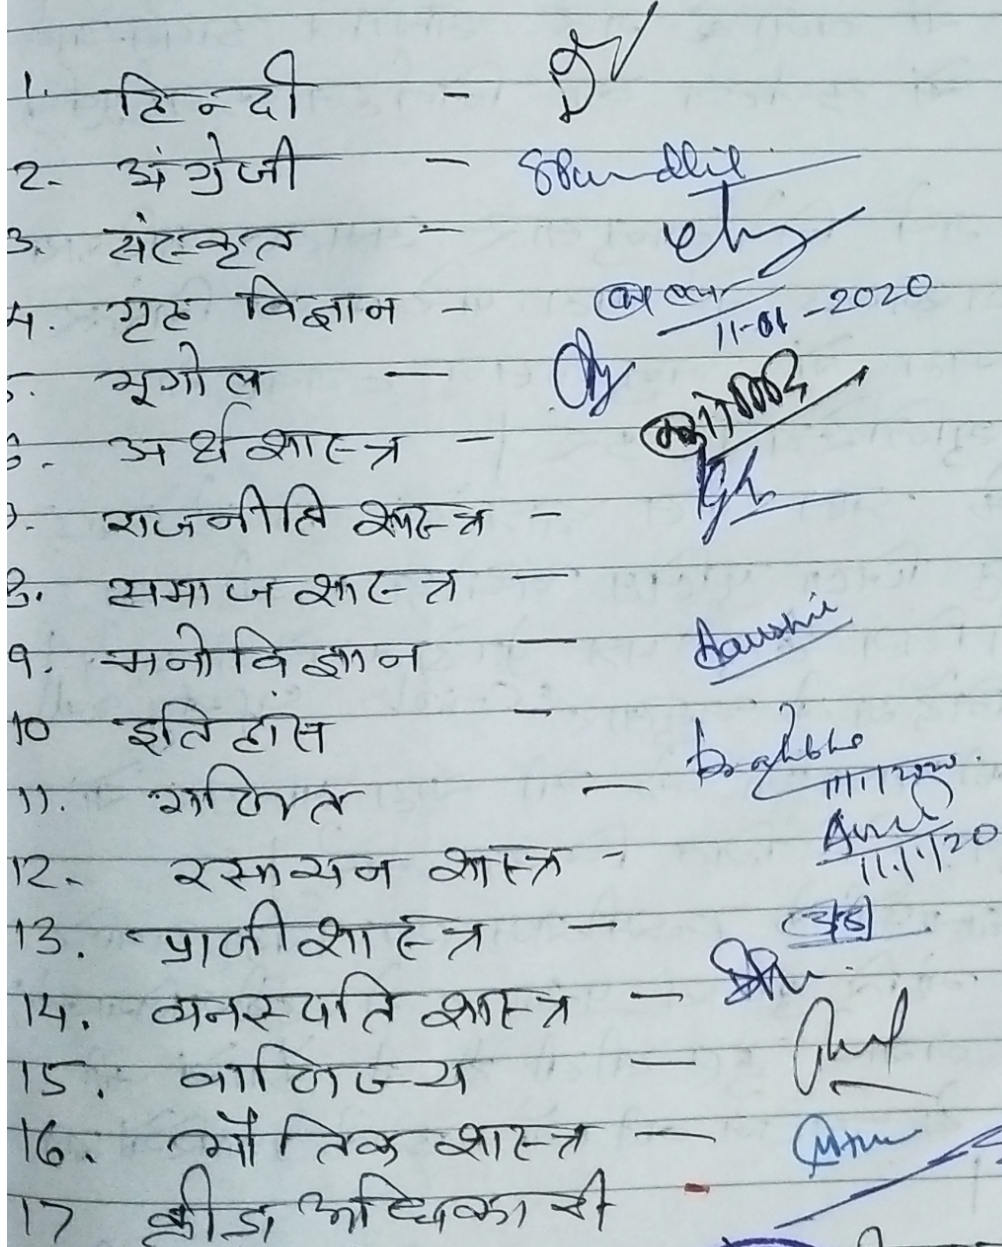 1. हिन्दी -
2. अंग्रेजी -
3. संस्कृत -
4. गृह विज्ञान - 11-01-2020
5. भूगोल -
6. अर्थशास्त्र -
7. राजनीति शास्त्र -
8. समाजशास्त्र -
9. मनोविज्ञान -
10 इतिहास -
11. गणित - 11/1/2020
12. रसायन शास्त्र - 11/1/20
13. प्राणीशास्त्र -
14. वनस्पति शास्त्र -
15. वाणिज्य -
16. भौतिक शास्त्र -
17 क्रीडा अधिकारी -